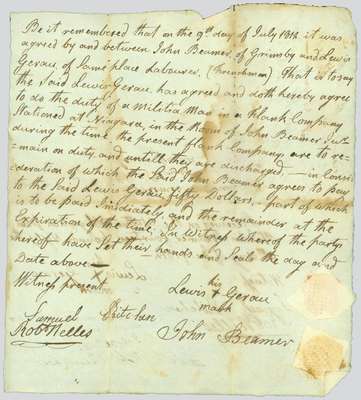 Be it remembered that on the 9th day of July 1812 it was
agreed by and between John Beamer, of Grimsby and Lewis
Gerau of same place Labourer, (Frenchman) That is to say
the Said Lewis Gerau has agreed and doth hereby agree
to do the duty of a Militia Man in a flank Company
Stationed at Niagara, in the Room of John Beamer Junr
during the time the present flank Company are to re-
-main on duty and untill they are discharged — in consid
eration of which the Said John Beamer agrees to pay
to the Said Lewis Gerau fifty Dollars, part of which
is to be paid Imediately and the remainder at the
Expiration of the time, In Witness whereof the partys
hereof have Set their hands and Seals the day and
Date above —
Witness present
his
Lewis + Gerau
mark
Samuel
Robt Nelles
John Beamer